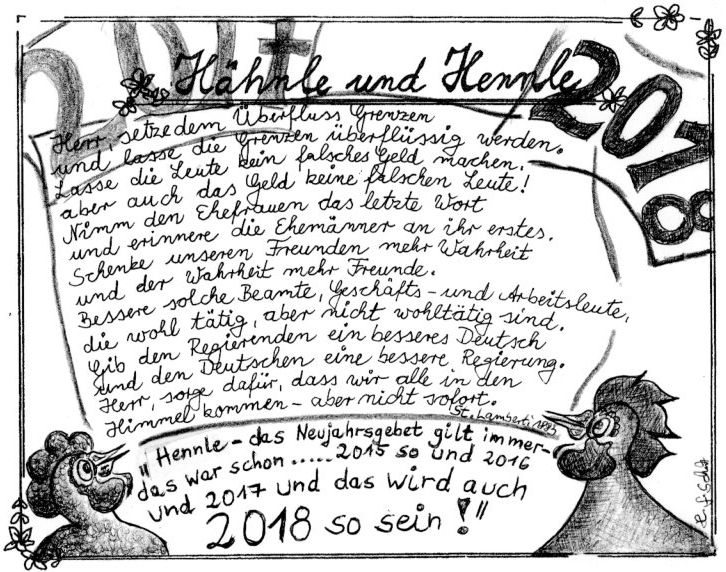 2017
2018
Hähnle und Hennle
Herr, setze dem Überfluss Grenzen
und lasse die Grenzen überflüssig werden.
Lasse die Leute kein falsches Geld machen,
aber auch das Geld keine falschen Leute!
Nimm den Ehefrauen das letzte Wort
und erinnere die Ehemänner an ihr erstes.
Schenke unseren Freunden mehr Wahrheit
und der Wahrheit mehr Freunde.
Bessere solche Beamte, Geschäfts- und Arbeitsleute,
die wohl tätig, aber nicht wohltätig sind.
Gib den Regierenden ein besseres Deutsch
und den Deutschen eine bessere Regierung.
Herr, sorge dafür, dass wir alle in den
Himmel kommen - aber nicht sofort.
St. Lamberti 1883
"Hennle - das Neujahrsgebet gilt immer-
das war schon ..... 2015 so und 2016
und 2017 und das wird auch
2018 so sein!"